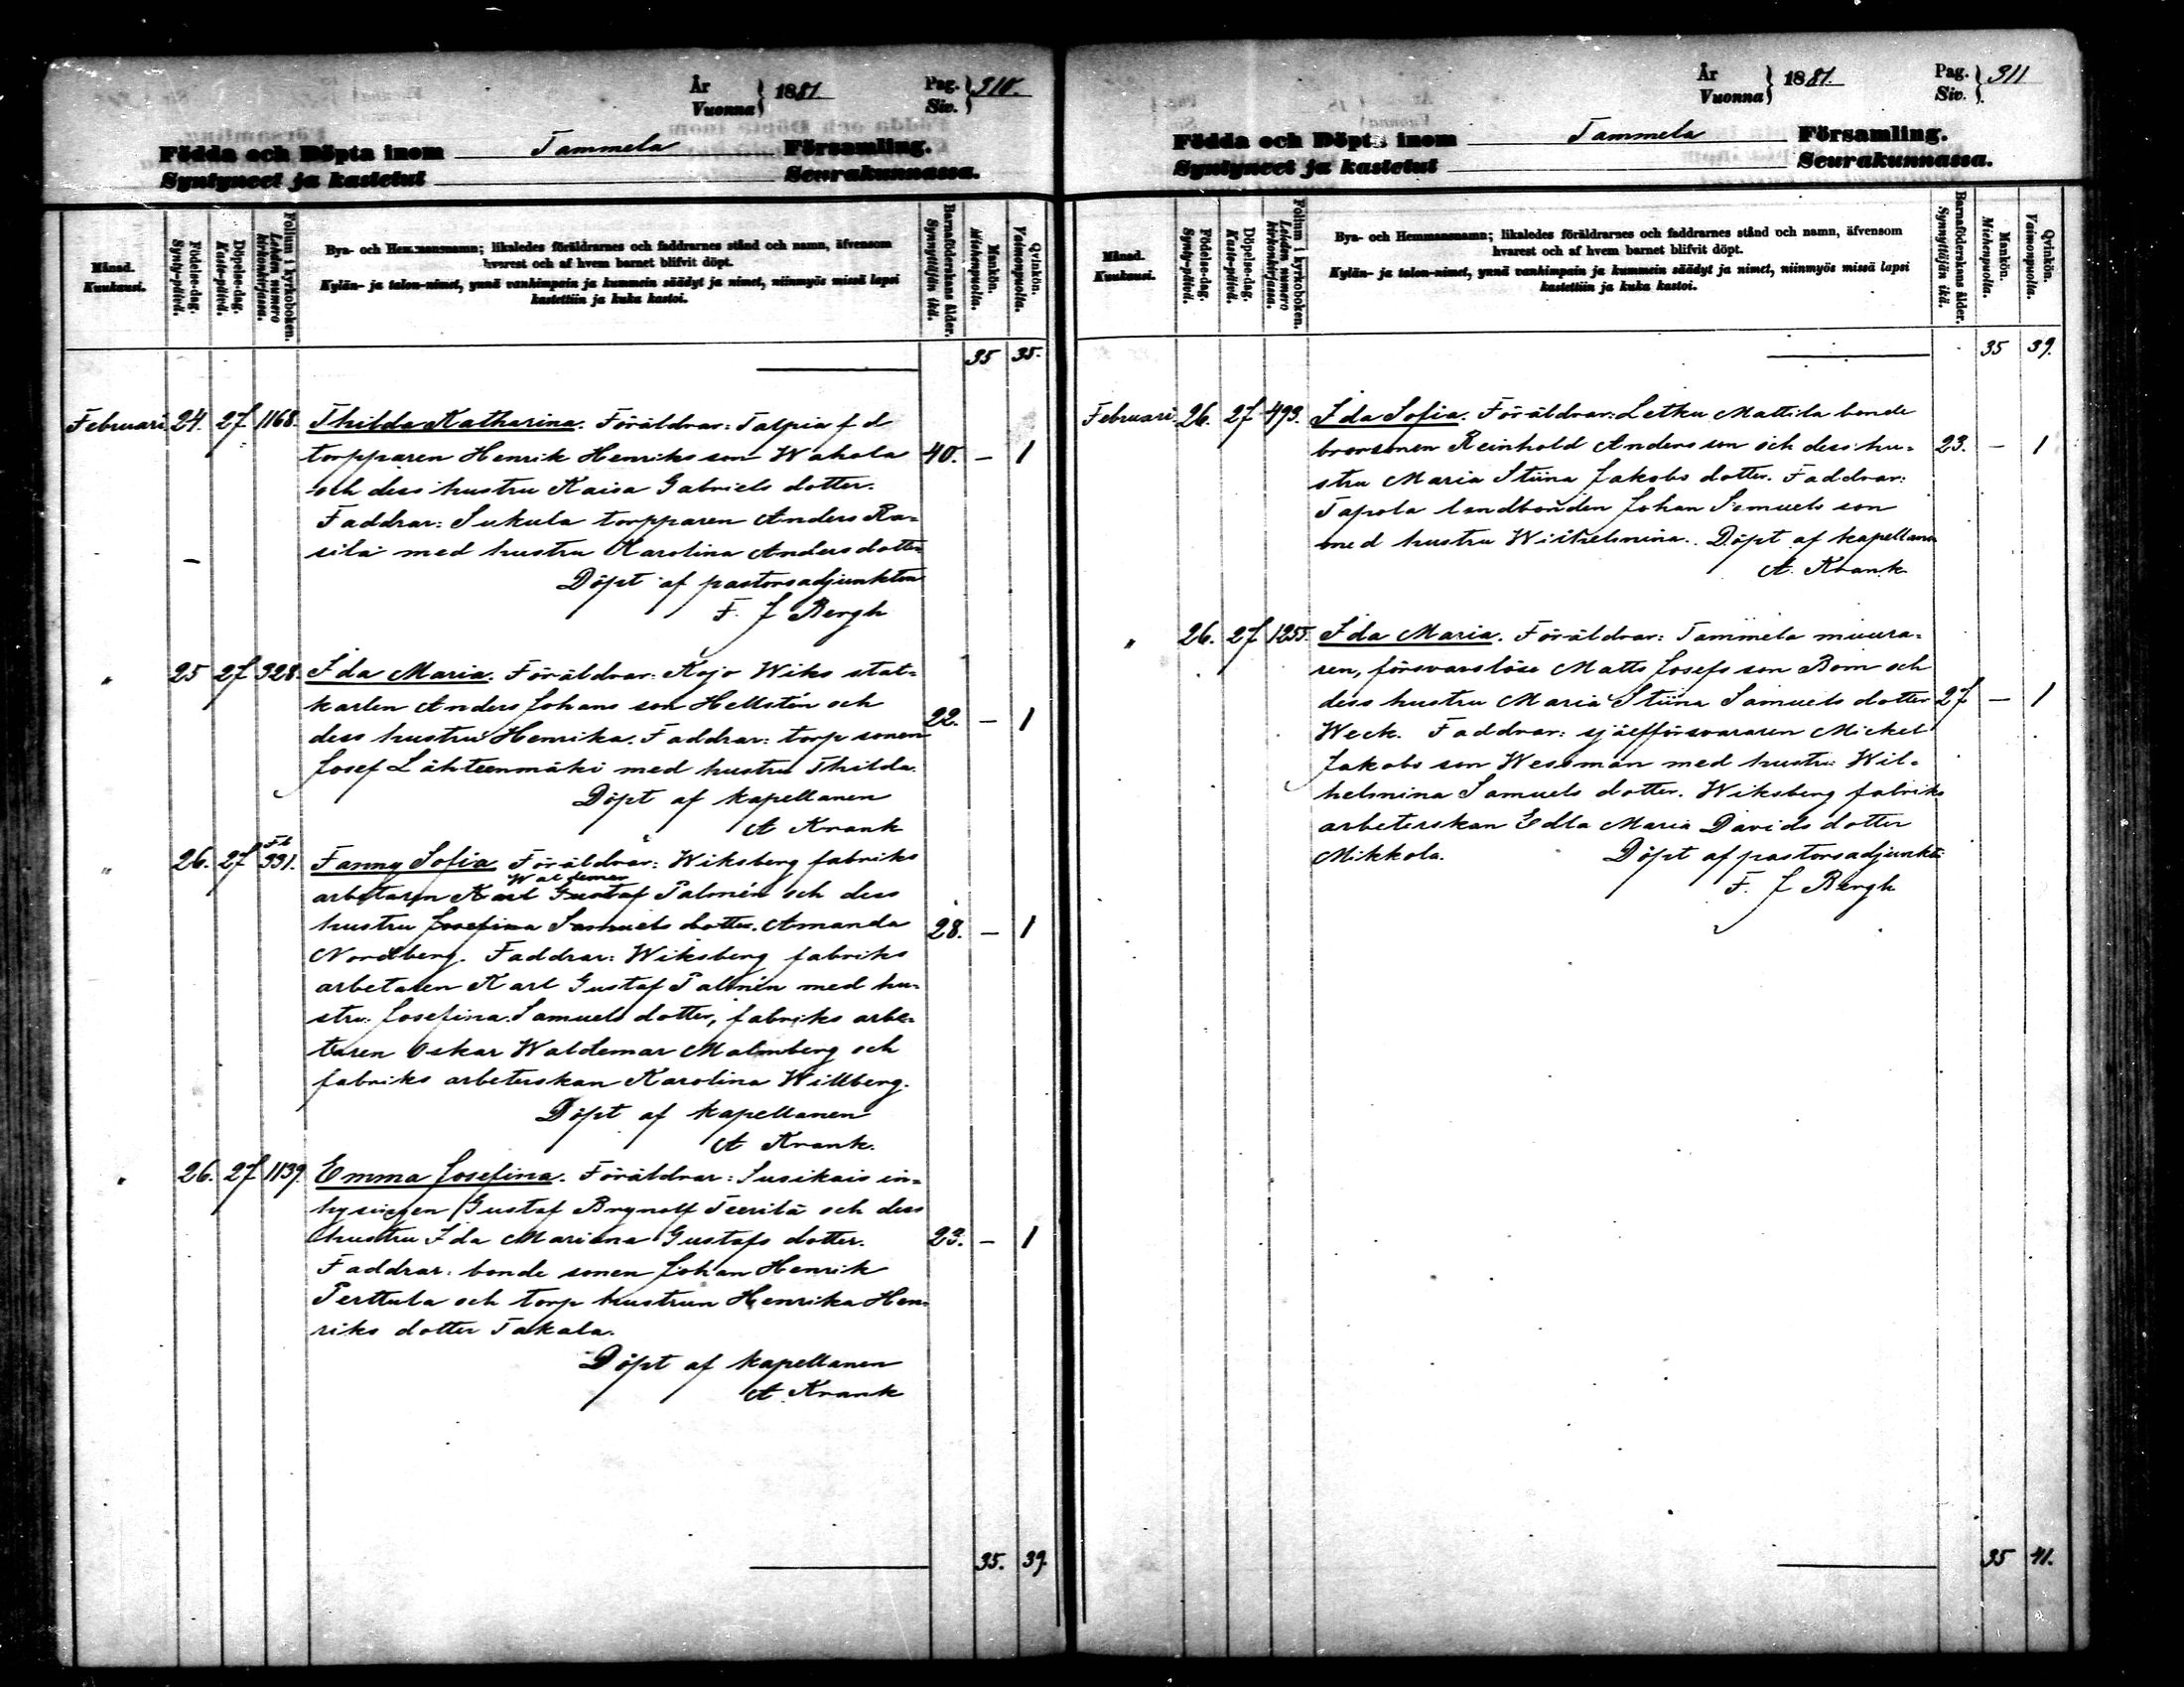 År Vuonna } 1881. Pag. Siv. } 310.
Födda och Döpta inom Tammela Församling.
Syntyneet ja kastetut Seurakunnassa.
Månad. Kuukausi.
Födelse-dag. Synty-päivä.
Döpelse-dag. Kaste-päivä.
Folium i kyrkoboken. Lehden numero kirkonkirjassa.
Bya- och Hemmansnamn; likaledes föräldrarnes och faddrarnes stånd och namn, äfvensom
hvarest och af hvem barnet blifvit döpt.
Kylän- ja talon-nimet, ynnä vanhimpain ja kummein säädyt ja nimet, niinmyös missä lapsi
kastettiin ja kuka kastoi.
Barnaföderskans ålder. Synnyttäjän ikä.
Mankön. Miehenpuolta.
Qvinkön. Vaimonpuolta.
35 35.
Februari 24. 27 1168. Thilda Katharina. Föräldrar: Talpia f d
torpparen Henrik Henriks son Wahala 40. - 1
och dess hustru Kaisa Gabriels dotter.
Faddrar: Sukula torpparen Anders Ra-
sila med hustru Karolina Anders dotter
Döpt af pastorsadjunkten
F. J Bergh
" 25 27 328. Ida Maria. Föräldrar: Kojo Wiks stat-
karlen Anders Johans son Hellstén och
dess hustru Henrika. Faddrar: torp sonen 22. - 1
Josef Lähteenmäki med hustru Thilda.
Döpt af kapellanen
A Krank
" 26. 27 Fb 331. Fanny Sofia Föräldrar: Wiksberg fabriks
Waldemar
arbetaren Karl Gustaf Palmén och dess
hustru Josefina Samuels dotter. Amanda 28. - 1
Nordberg. Faddrar: Wiksberg fabriks
arbetaren Karl Gustaf Palmén med hu-
stru Josefina Samuels dotter, fabriks arbe-
taren Oskar Waldemar Malmberg och
fabriks arbeterskan Karolina Willberg.
Döpt af kapellanen
A Krank.
" 26. 27 1139. Emma Josefina. Föräldrar: Susikais in-
hysingen Gustaf Brynolf Teerilä och dess
hustru Ida Mariana Gustafs dotter. 23. - 1
Faddrar: bonde sonen Johan Henrik
Perttula och torp hustrun Henrika Hen-
riks dotter Takala.
Döpt af kapellanen
A. Krank
35. 39.
År Vuonna } 1881. Pag. Siv. } 311
Födda och Döpta inom Tammela Församling.
Syntyneet ja kastetut Seurakunnassa.
Månad. Kuukausi.
Födelse-dag. Synty-päivä.
Döpelse-dag. Kaste-päivä.
Folium i kyrkoboken. Lehden numero kirkonkirjassa.
Bya- och Hemmansnamn; likaledes föräldrarnes och faddrarnes stånd och namn, äfvensom
hvarest och af hvem barnet blifvit döpt.
Kylän- ja talon-nimet, ynnä vanhimpain ja kummein säädyt ja nimet, niinmyös missä lapsi
kastettiin ja kuka kastoi.
Barnaföderskans ålder. Synnyttäjän ikä.
Mankön. Miehenpuolta.
Qvinkön. Vaimonpuolta.
35 39.
Februari. 26. 27 493. Ida Sofia. Föräldrar: Letku Mattila bonde
brorsonen Reinhold Anders son och dess hu- 23. - 1
stru Maria Stiina Jakobs dotter. Faddrar:
Tapola landbonden Johan Samuels son
med hustru Wilhelmina. Döpt af kapellanen
A. Krank
" 26. 27 1255. Ida Maria. Föräldrar: Tammela muura-
ren, försvarslöse Matts Josefs son Bom och
dess hustru Maria Stiina Samuels dotter 27 - 1
Weck. Faddrar: sjelfförsvararen Mickel
Jakobs son Wessman med hustru Wil-
helmina Samuels dotter. Wiksberg fabriks
arbeterskan Edla Maria Davids dotter
Mikkola. Döpt af pastorsadjunkt:
F. J Bergh
35 41.